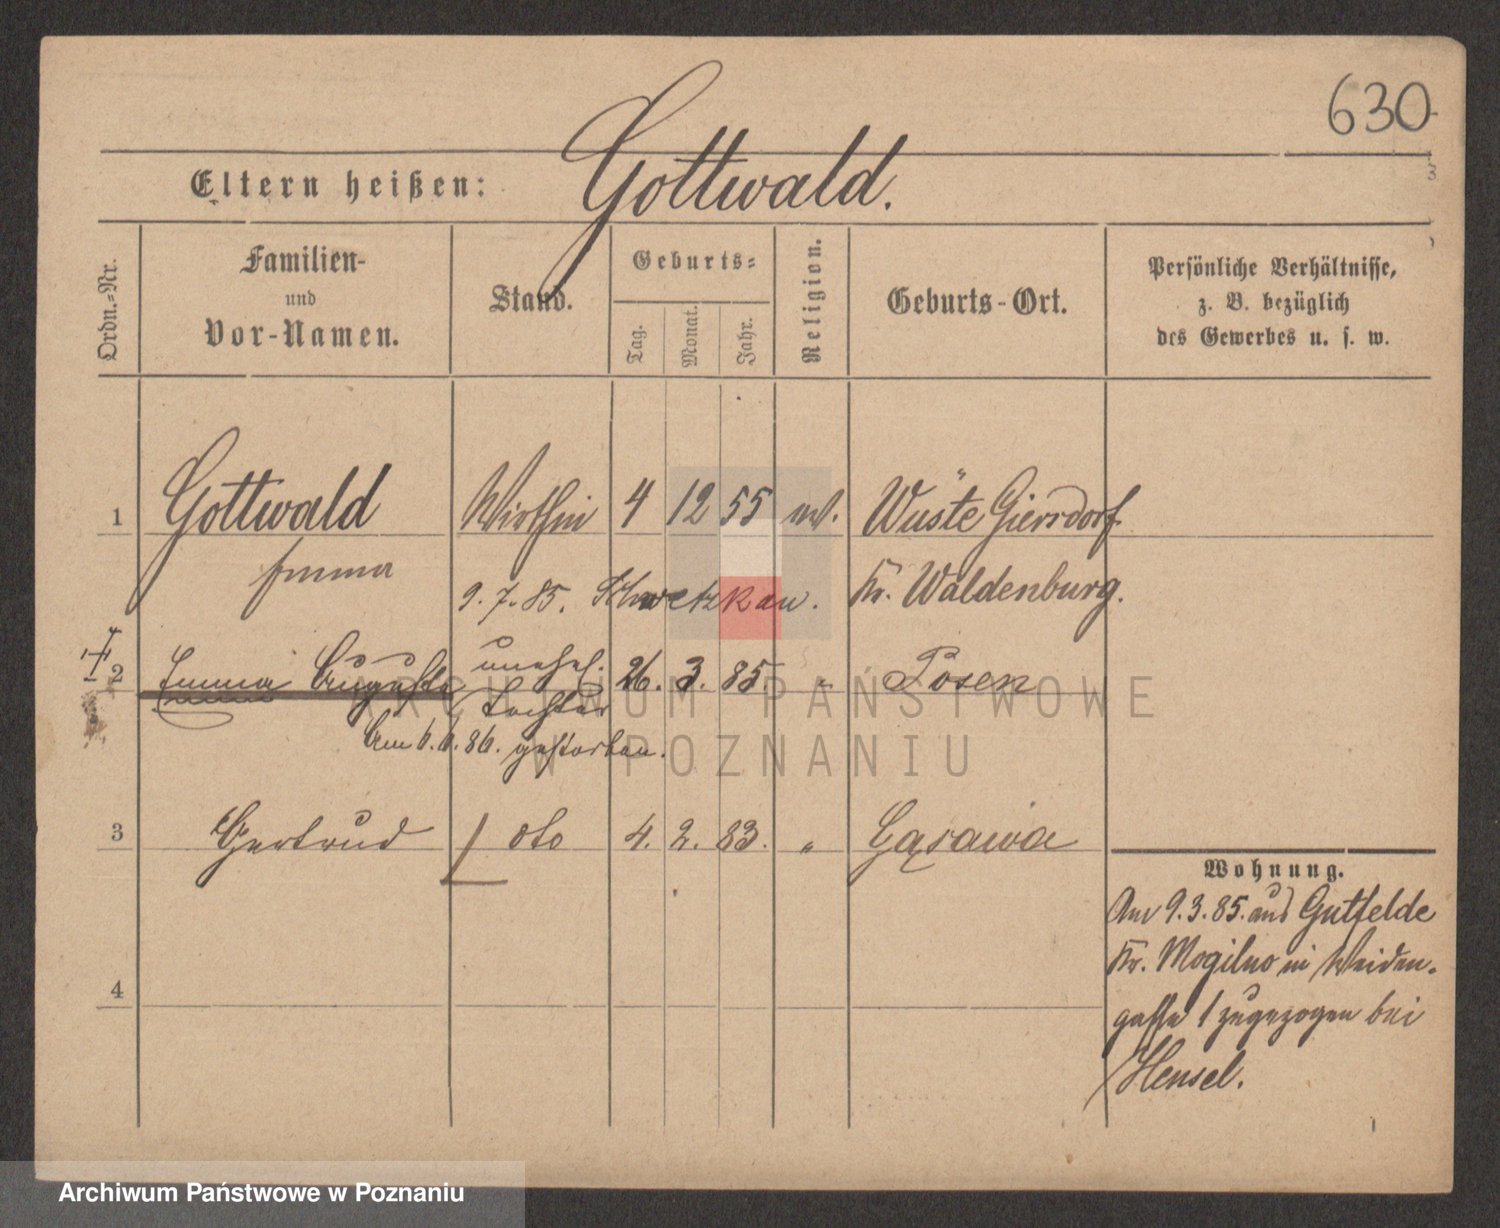 630
Eltern heißen: Gottwald.
Ordn.-Nr.
Familien-
und
Vor-Namen.
Stand.
Geburts-
Tag.
Monat.
Jahr.
Religion.
Geburts-Ort.
Persönliche Verhältnisse,
z. B. bezüglich
des Gewerbes u. s. w.
1 Gottwald Wirthin 4 12 55 ev. Wüste Giersdorf
Emma 9. 7. 85. Kr. Waldenburg.
2 Emma Auguste unehel. 26. 3. 85. " Posen
Tochter
Am 6. 6. 86. gestorben.
3 Gertrud dto 4. 2. 83. " Gąsawa
Wohnung.
Am 9.3.85. aus Gutfelde
Kr. Mogilno in Weiden-
gasse 1 zugezogen bei
Hensel.
4
ARCHIWUM PAŃSTWOWE
W POZNANIU
Archiwum Państwowe w Poznaniu